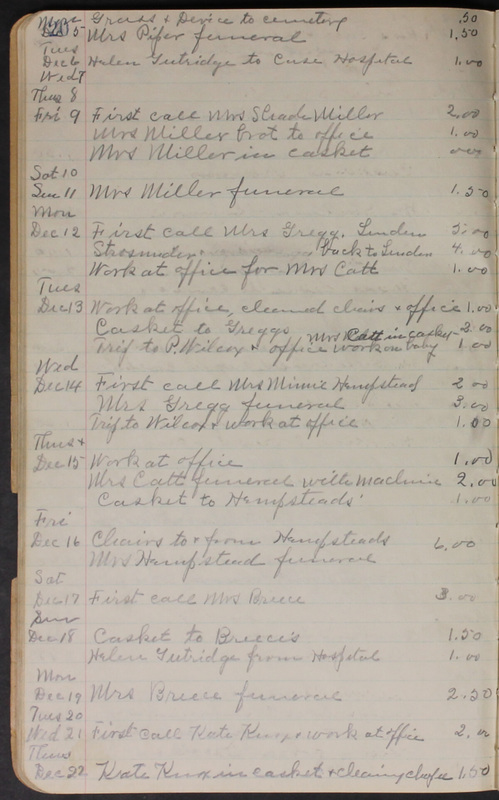 Grass & Device to cemetery .50
Dec 5 Mrs Pifer funeral 1.50
Tues
Dec 6 Helen Gutridge to Case Hospital 1.00
Wed 7
Thus 8
Fri 9 First call Mrs Slade Miller 2.00
Mrs Miller brot to office 1.00
Mrs Miller in casket
Sat 10
Sun 11 Mrs Miller funeral 1.50
Mon
Dec 12 First call Mrs Gregg. Linden 5.00
back to Linden 4.00
Work at office for Mrs Catt 1.00
Tues
Dec 13 Work at office, cleaned chairs & office 1.00
Casket to Greggs Mrs Catt in casket 2.00
Trip to P. Wilcox & office work on baby 1 00
Wed
Dec 14 First call Mrs Minnie Hempstead 2 00
Mrs Gregg funeral 3.00
Trip to Wilcox & work at office 1.00
Thus
Dec 15 Work at office 1.00
Mrs Catt funeral with machine 2.00
Casket to Hempsteads' 1.00
Fri
Dec 16 Chairs to & from Hempsteads 6.00
Mrs Hempstead funeral
Sat
Dec 17 First call Mrs Breece 3.00
Sun
Dec 18 Casket to Breece's 1.50
Helen Gutridge from Hospital 1.00
Mon
Dec 19 Mrs Breece funeral 2.50
Tues 20
Wed 21 First call Kate Knox & work at office 2.00
Thus
Dec 22 Kate Knox in casket & cleaning 1.50